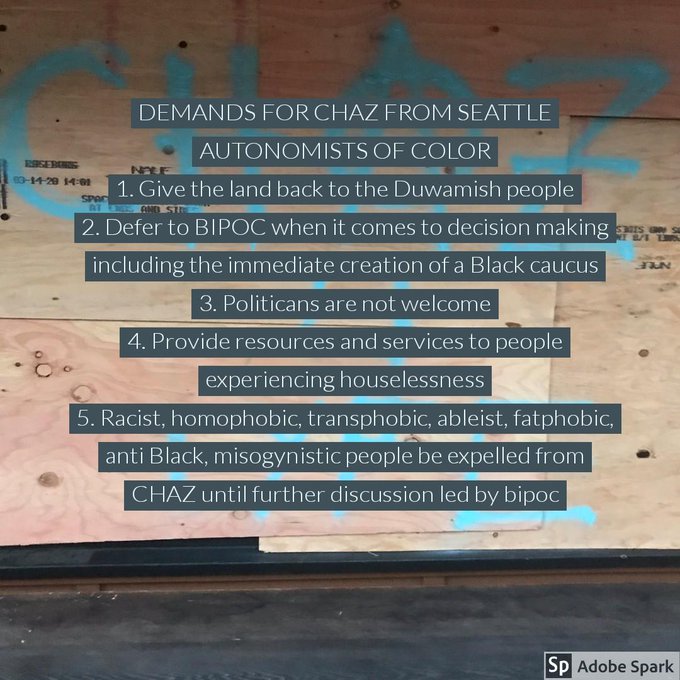 CHAZ
DEMANDS FOR CHAZ FROM SEATTLE
AUTONOMISTS OF COLOR
1. Give the land back to the Duwamish people
2. Defer to BIPOC when it comes to decision making
including the immediate creation of a Black caucus
3. Politicans are not welcome
4. Provide resources and services to people
experiencing houselessness
5. Racist, homophobic, transphobic, ableist, fatphobic,
anti Black, misogynistic people be expelled from
CHAZ until further discussion led by bipoc
ROSEBURG
03-14-20 14:01
Sp Adobe Spark